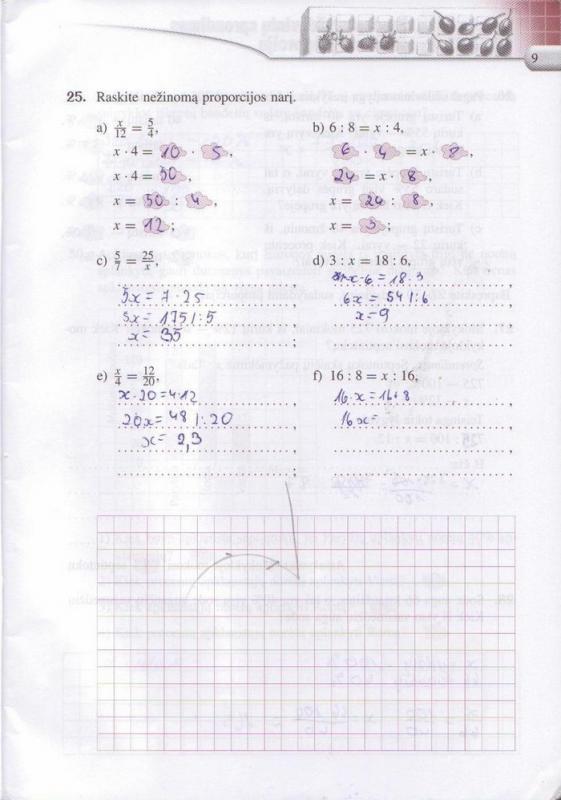 9
25. Raskite nežinomą proporcijos narį.
a) x/12 = 5/4,
x · 4 = 10 · 5,
x · 4 = 50,
x = 50 : 4,
x = 12;
b) 6 : 8 = x : 4,
6 · 4 = x · 8,
24 = x · 8,
x = 24 : 8,
x = 3;
c) 5/7 = 25/x,
5x = 7 · 25
5x = 175 | : 5
x = 35
d) 3 : x = 18 : 6,
x·6 = 18·3
6x = 54 | : 6
x = 9
e) x/4 = 12/20,
x · 20 = 4·12
20x = 48 | : 20
x = 2,3
f) 16 : 8 = x : 16,
16·x = 16+8
16x =